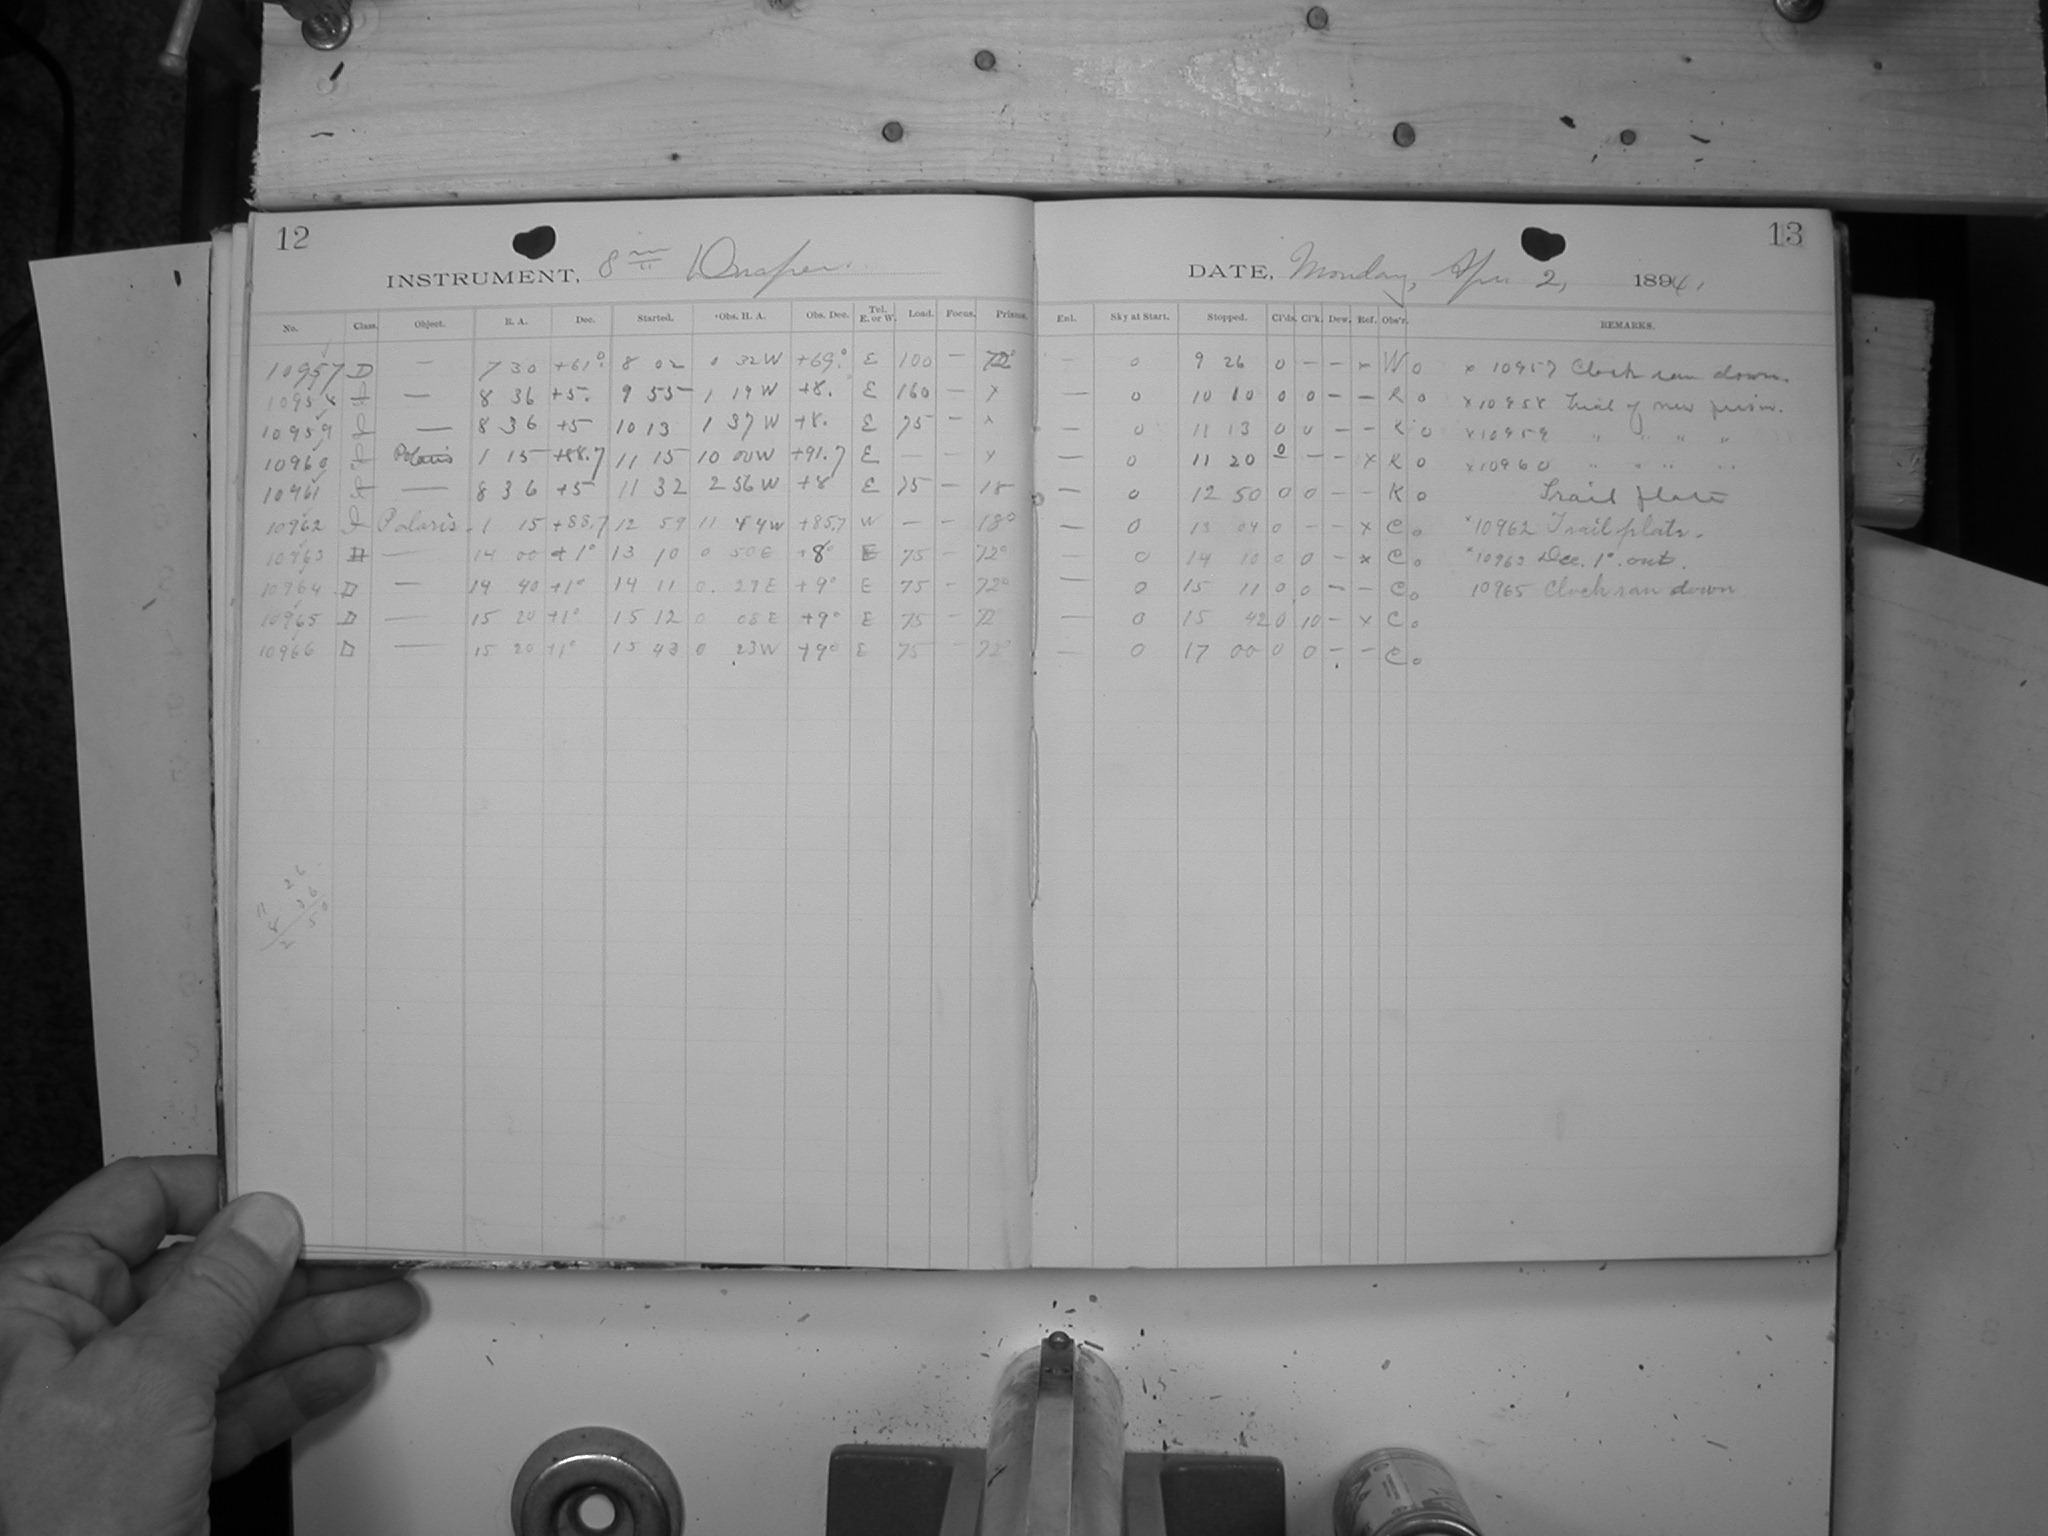 12
INSTRUMENT, 8 in Draper.
No. Class. Object. R. A. Dec. Started. Obs. H. A. Obs. Dec. Tel. E. or W. Load. Focus. Prisms.
10957 D — 7 30 +61° 8 02 0 32 W +69° E 100 — 72°
10958 I — 8 36 +5. 9 55 1 19 W +8. E 160 — x
10959 I — 8 36 +5 10 13 1 37 W +8. E 75 — x
10960 I Polaris 1 15 +88.7 11 15 10 00 W +91.7 E — — x
10961 I — 8 36 +5 11 32 2 56 W +8 E 75 — 18
10962 I Polaris. 1 15 +88.7 12 59 11 44 W +85.7 W — — 18°
10963 — 14 00 +1° 13 10 0 50 E +8° E 75 — 72°
10964 D — 14 40 +1° 14 11 0. 29 E +9° E 75 — 72°
10965 D — 15 20 +1° 15 12 0 08 E +9° E 75 — 72
10966 D — 15 20 +1° 15 43 0 23 W +9° E 75 — 72°
26
36
8
2 50
13
DATE, Monday, Apr. 2, 1894.
Enl. Sky at Start. Stopped. Cl'ds. Cl'k. Dew. Ref. Obs'r. REMARKS.
— 0 9 26 0 — — x W o x 10957 Clock ran down.
— 0 10 10 0 0 — — K o x 10958 Trial of new prism.
— 0 11 13 0 0 — — K o x 10959 " " " "
— 0 11 20 0 — — x K o x 10960 " " " "
— 0 12 50 0 0 — — K o Trail plate
— 0 13 04 0 — — x C o x 10962 Trail plate.
— 0 14 10 0 0 — x C o x 10963 Dec. 1° out.
— 0 15 11 0 0 — — C o 10965 Clock ran down
— 0 15 42 0 10 — x C o
— 0 17 00 0 0 — — C o